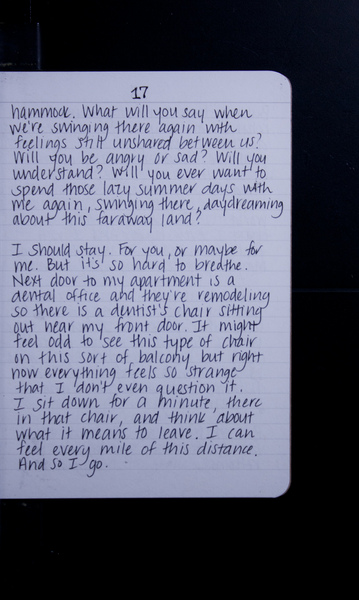 17
hammock. What will you say when
we're swinging there again with
feelings still unshared between us?
Will you be angry or sad? Will you
understand? Will you ever want to
spend those lazy summer days with
me again, swinging there, daydreaming
about this faraway land?
I should stay. For you, or maybe for
me. But it's so hard to breathe.
Next door to my apartment is a
dental office and they're remodeling
so there is a dentist's chair sitting
out near my front door. It might
feel odd to see this type of chair
on this sort of balcony but right
now everything feels so strange
that I don't even question it.
I sit down for a minute, there
in that chair, and think about
what it means to leave. I can
feel every mile of this distance.
And so I go.